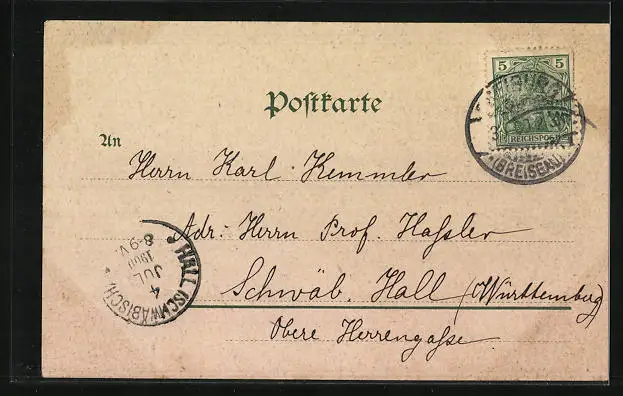 5 5
REICHSPOST
(BREISGAU)
Postkarte
An
Herrn Karl Kemmler
Adr. Herrn Prof. Haßler
Schwäb. Hall (Württemberg)
Obere Herrengaße.
HALL (SCHWÄBISCH)
4
JUL
1900
8-9 V.